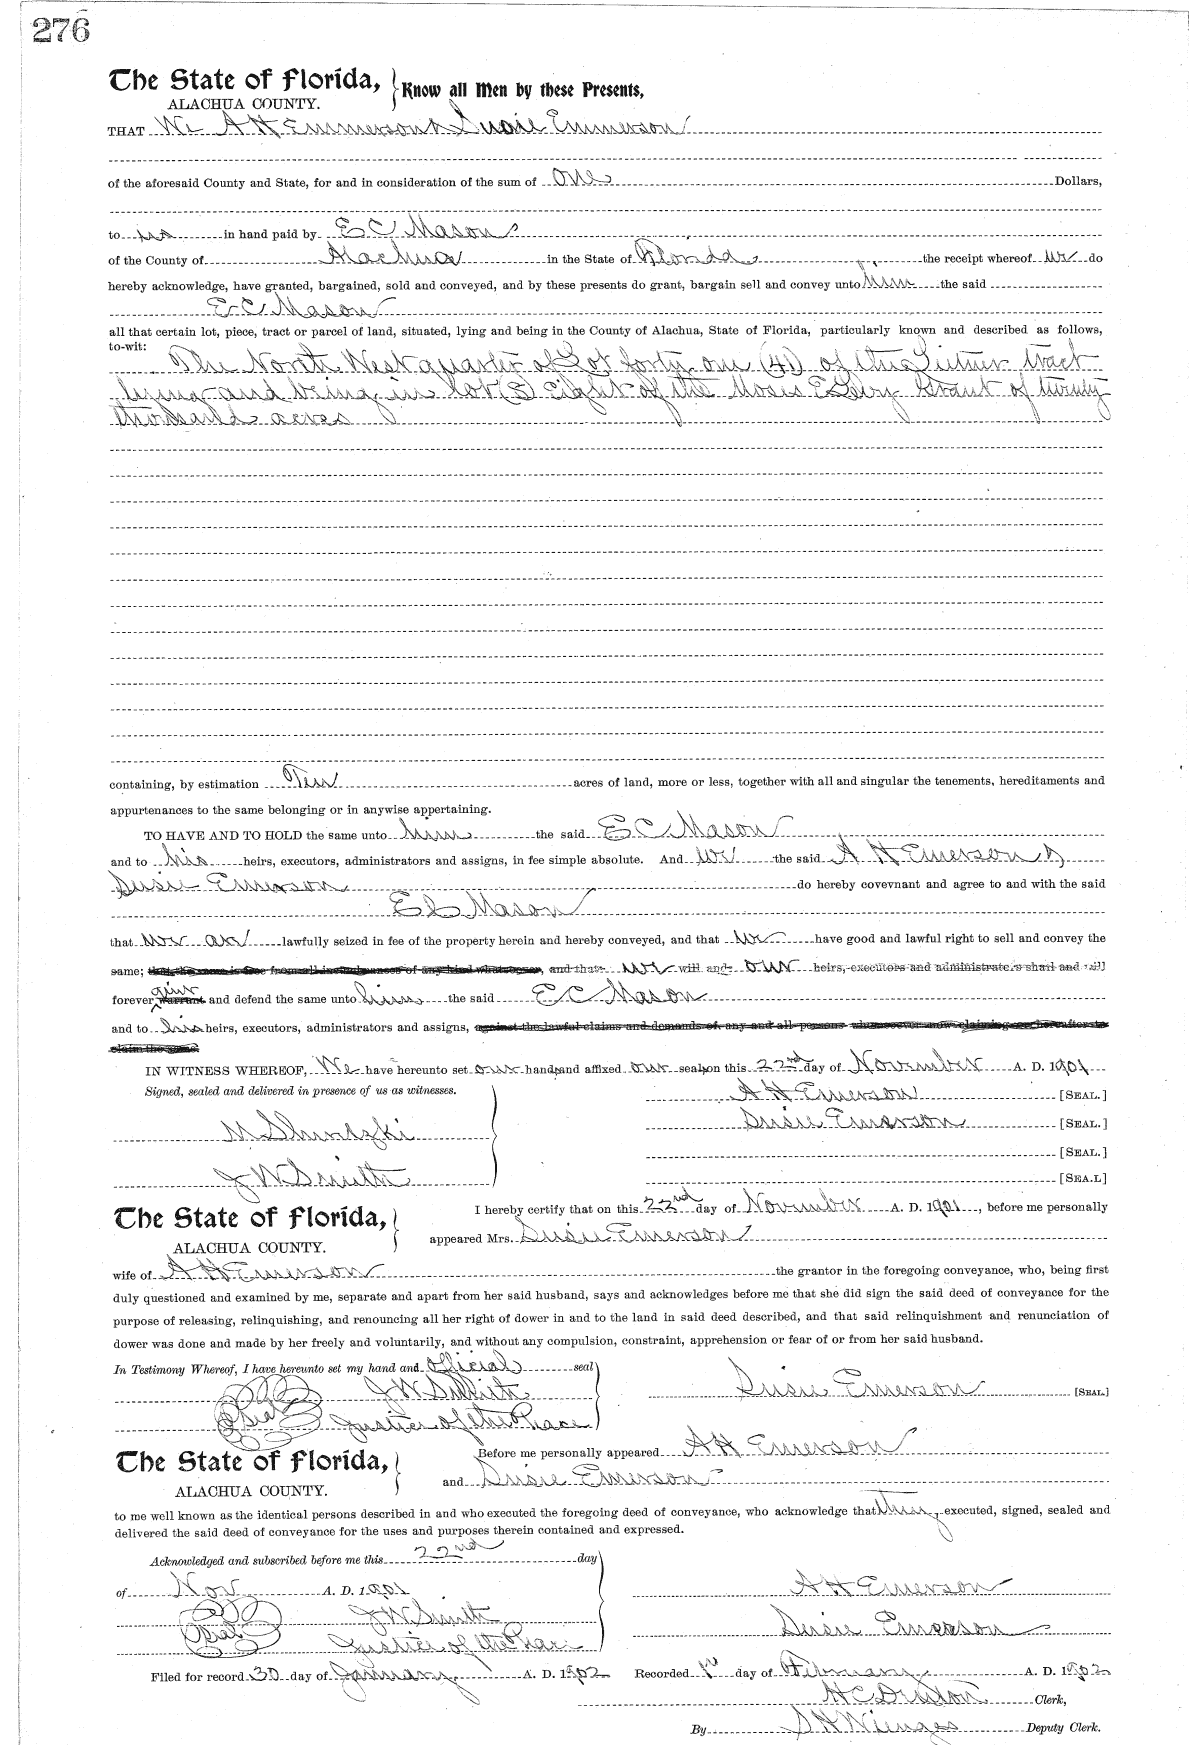 276
The State of Florida, Know all Men by these Presents,
ALACHUA COUNTY.
THAT We A H Emmerson & Susie Emmerson
of the aforesaid County and State, for and in consideration of the sum of One Dollars,
to us in hand paid by E C Mason
of the County of Alachua in the State of Florida the receipt whereof we do
hereby acknowledge, have granted, bargained, sold and conveyed, and by these presents do grant, bargain sell and convey unto him the said
E C Mason
all that certain lot, piece, tract or parcel of land, situated, lying and being in the County of Alachua, State of Florida, particularly known and described as follows,
to-wit:
The North West quarter of Lot forty one (41) of the tract
lying and being in lot (8) Eight of the Moses E Levy Grant of twenty
thousand acres
containing, by estimation Ten acres of land, more or less, together with all and singular the tenements, hereditaments and
appurtenances to the same belonging or in anywise appertaining.
TO HAVE AND TO HOLD the same unto him the said E C Mason
and to his heirs, executors, administrators and assigns, in fee simple absolute. And we the said A H Emerson &
Susie Emerson do hereby covevnant and agree to and with the said
E C Mason
that we are lawfully seized in fee of the property herein and hereby conveyed, and that we have good and lawful right to sell and convey the
same; that the same is free from all incumbrances of any kind whatsoever, and that we will and our heirs, executors and administrators shall and will
forever warrant give and defend the same unto him the said E C Mason
and to his heirs, executors, administrators and assigns, against the lawful claims and demands of any and all persons whomsoever now claiming or hereafter to
claim the same.
IN WITNESS WHEREOF, We have hereunto set our hands and affixed our seals on this 22nd day of November A. D. 1901
Signed, sealed and delivered in presence of us as witnesses. A H Emerson [SEAL.]
Susie Emerson [SEAL.]
[SEAL.]
J W Smith [SEA.L]
The State of Florida, I hereby certify that on this 22nd day of November A. D. 1901, before me personally
ALACHUA COUNTY. appeared Mrs. Susie Emerson
wife of A H Emerson the grantor in the foregoing conveyance, who, being first
duly questioned and examined by me, separate and apart from her said husband, says and acknowledges before me that she did sign the said deed of conveyance for the
purpose of releasing, relinquishing, and renouncing all her right of dower in and to the land in said deed described, and that said relinquishment and renunciation of
dower was done and made by her freely and voluntarily, and without any compulsion, constraint, apprehension or fear of or from her said husband.
In Testimony Whereof, I have hereunto set my hand and official seal
J W Smith Susie Emerson [SEAL.]
Seal Justice of the Peace
The State of Florida, Before me personally appeared A H Emerson
ALACHUA COUNTY. and Susie Emerson
to me well known as the identical persons described in and who executed the foregoing deed of conveyance, who acknowledge that they executed, signed, sealed and
delivered the said deed of conveyance for the uses and purposes therein contained and expressed.
Acknowledged and subscribed before me this 22nd day
of Nov A. D. 1901 A H Emerson
J W Smith Susie Emerson
Seal Justice of the Peace
Filed for record 30 day of January A. D. 1902 Recorded 1st day of February A. D. 1902
H C Denton Clerk,
By S H Wienges Deputy Clerk.